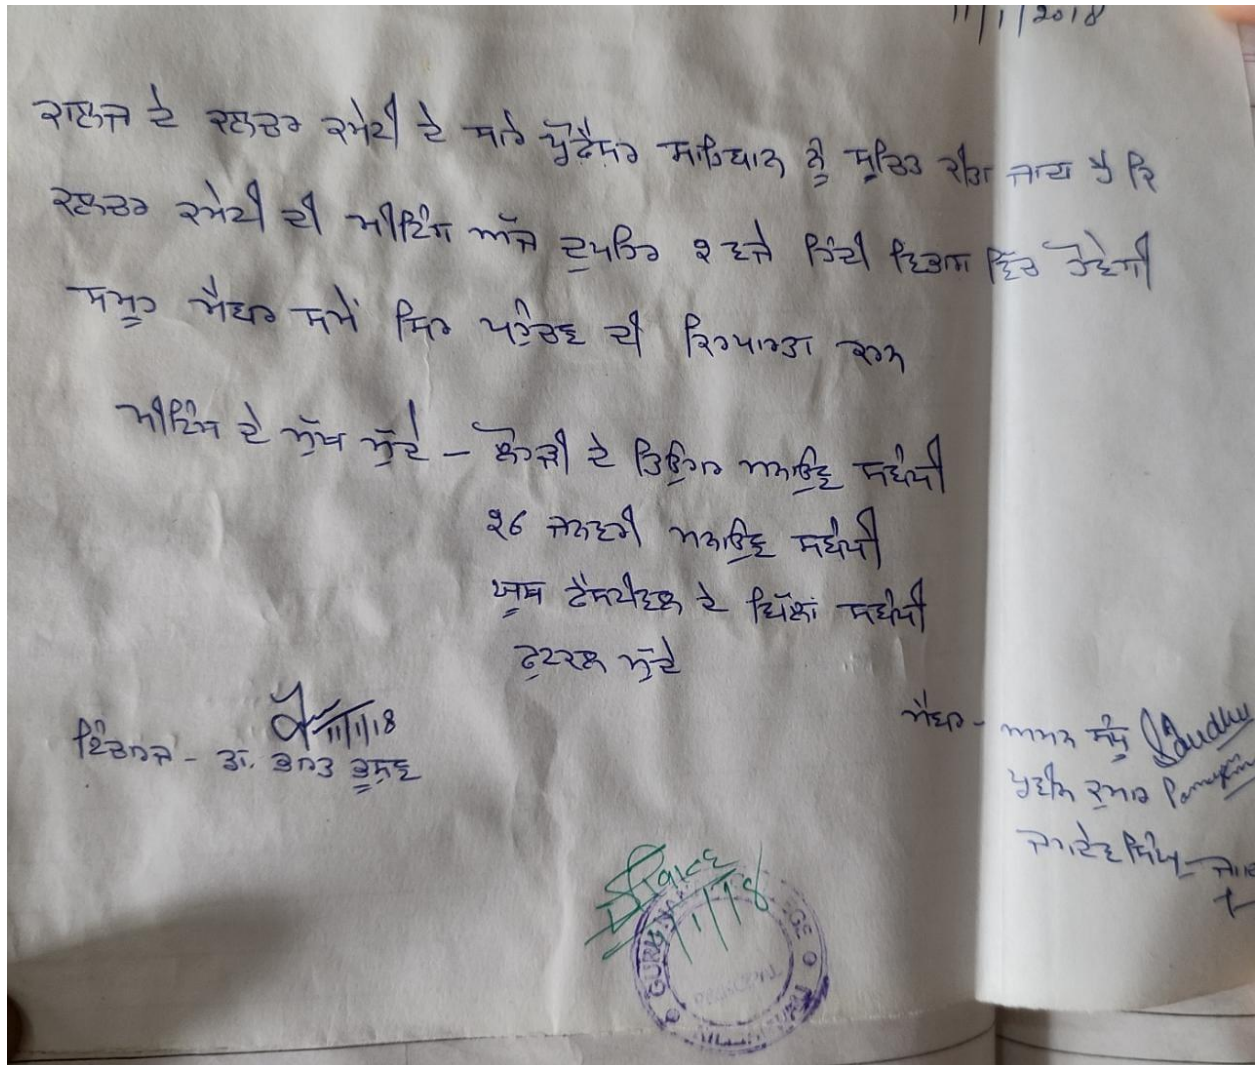 11/1/2018
ਕਾਲਜ ਦੇ ਕਲਚਰ ਕਮੇਟੀ ਦੇ ਸਾਰੇ ਪ੍ਰੋਫੈਸਰ ਸਾਹਿਬਾਨ ਨੂੰ ਸੂਚਿਤ ਕੀਤਾ ਜਾਂਦਾ ਹੈ ਕਿ
ਕਲਚਰ ਕਮੇਟੀ ਦੀ ਮੀਟਿੰਗ ਅੱਜ ਦੁਪਹਿਰ ੨ ਵਜੇ ਹਿੰਦੀ ਵਿਭਾਗ ਵਿੱਚ ਹੋਵੇਗੀ
ਸਮੂਹ ਮੈਂਬਰ ਸਮੇਂ ਸਿਰ ਪਹੁੰਚਣ ਦੀ ਕਿਰਪਾਲਤਾ ਕਰਨ
ਮੀਟਿੰਗ ਦੇ ਮੁੱਖ ਮੁੱਦੇ - ਲੋਹੜੀ ਦੇ ਤਿਉਹਾਰ ਮਨਾਉਣ ਸਬੰਧੀ
੨੬ ਜਨਵਰੀ ਮਨਾਉਣ ਸਬੰਧੀ
ਯੂਥ ਫੈਸਟੀਵਲ ਦੇ ਬਿੱਲਾਂ ਸਬੰਧੀ
ਫੁਟਕਲ ਮੁੱਦੇ
11/1/18
ਇੰਚਾਰਜ - ਡਾ. ਭਾਰਤ ਭੂਸ਼ਣ
ਮੈਂਬਰ - ਅਮਨ ਸੰਧੂ Sandhu
ਪ੍ਰਵੀਨ ਕੁਮਾਰ
ਜਗਦੇਵ ਸਿੰਘ -
GURU NA GE
PRINCIPAL
KILLIAN